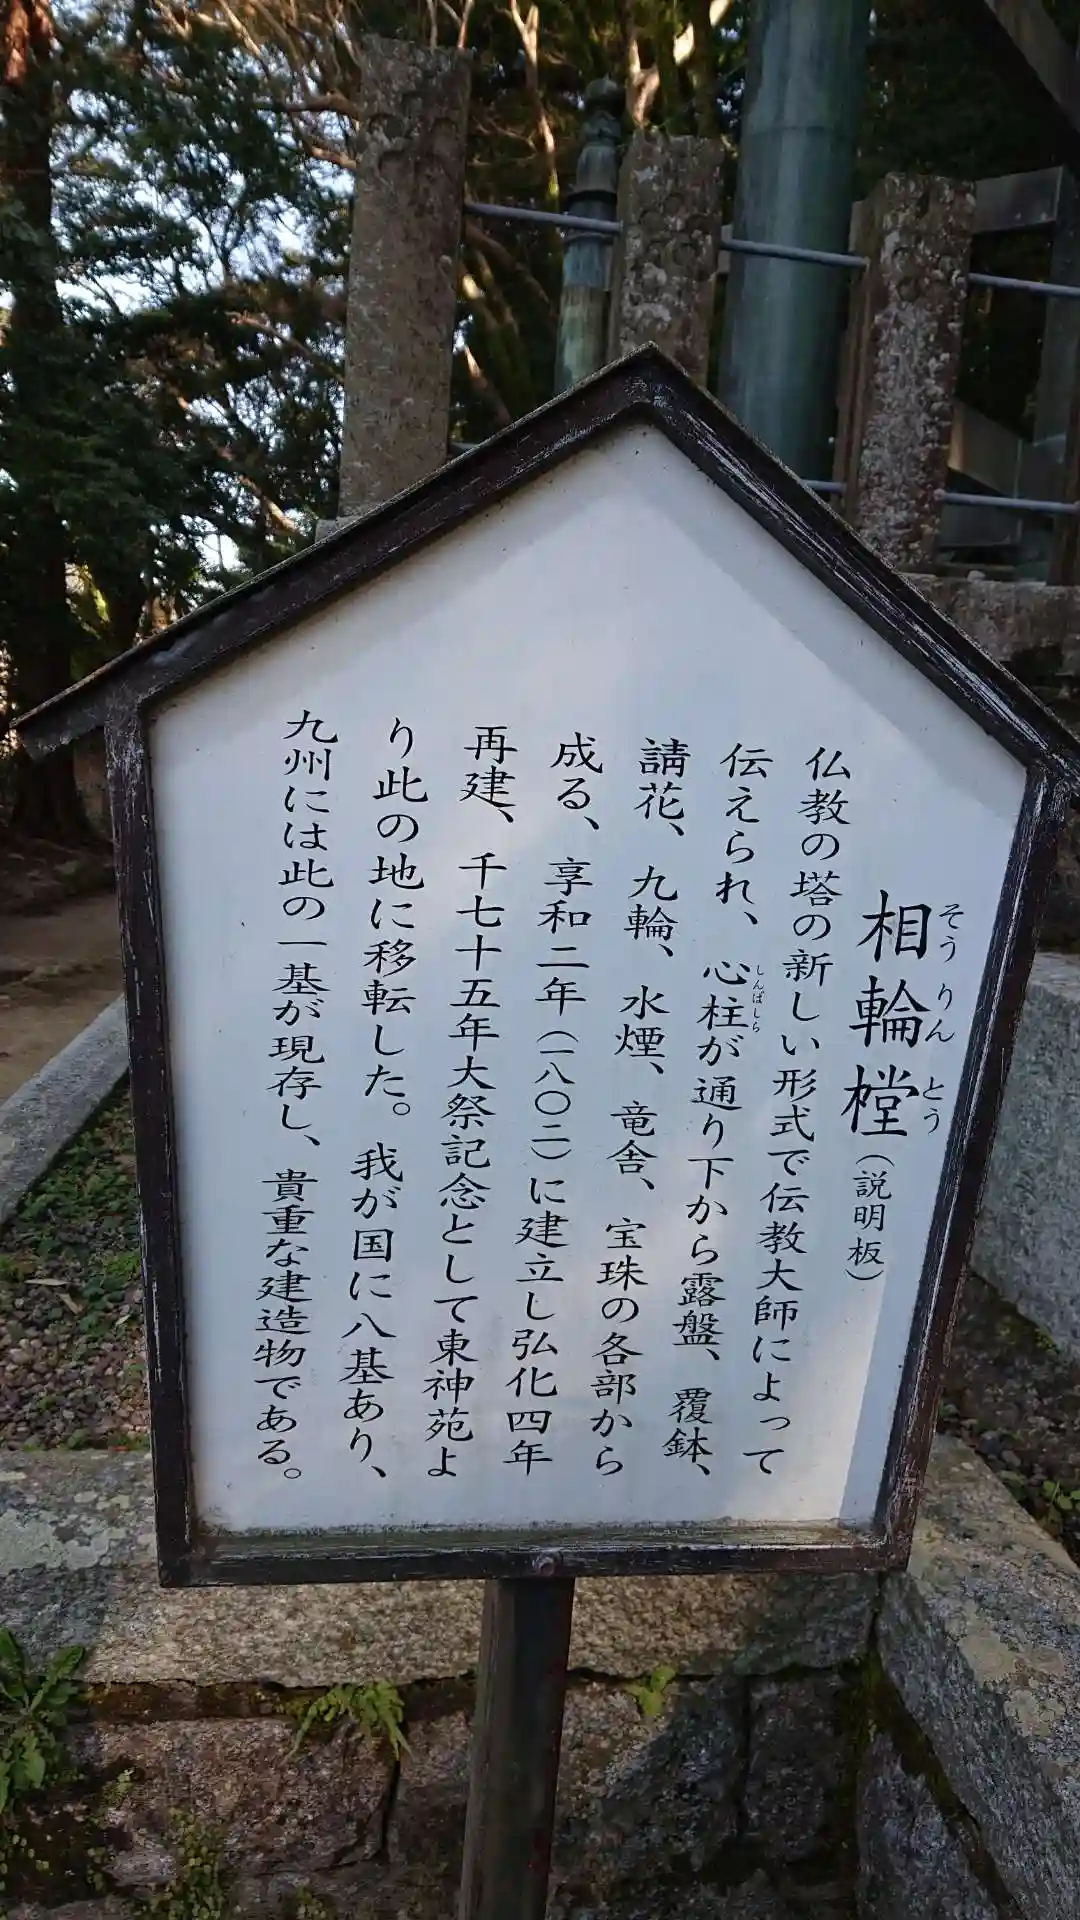 相輪橖（説明板）
そうりんとう
仏教の塔の新しい形式で伝教大師によって
伝えられ、心柱が通り下から露盤、覆鉢、
しんばしら
請花、九輪、水煙、竜舎、宝珠の各部から
成る、享和二年（一八〇二）に建立し弘化四年
再建、千七十五年大祭記念として東神苑よ
り此の地に移転した。我が国に八基あり、
九州には此の一基が現存し、貴重な建造物である。